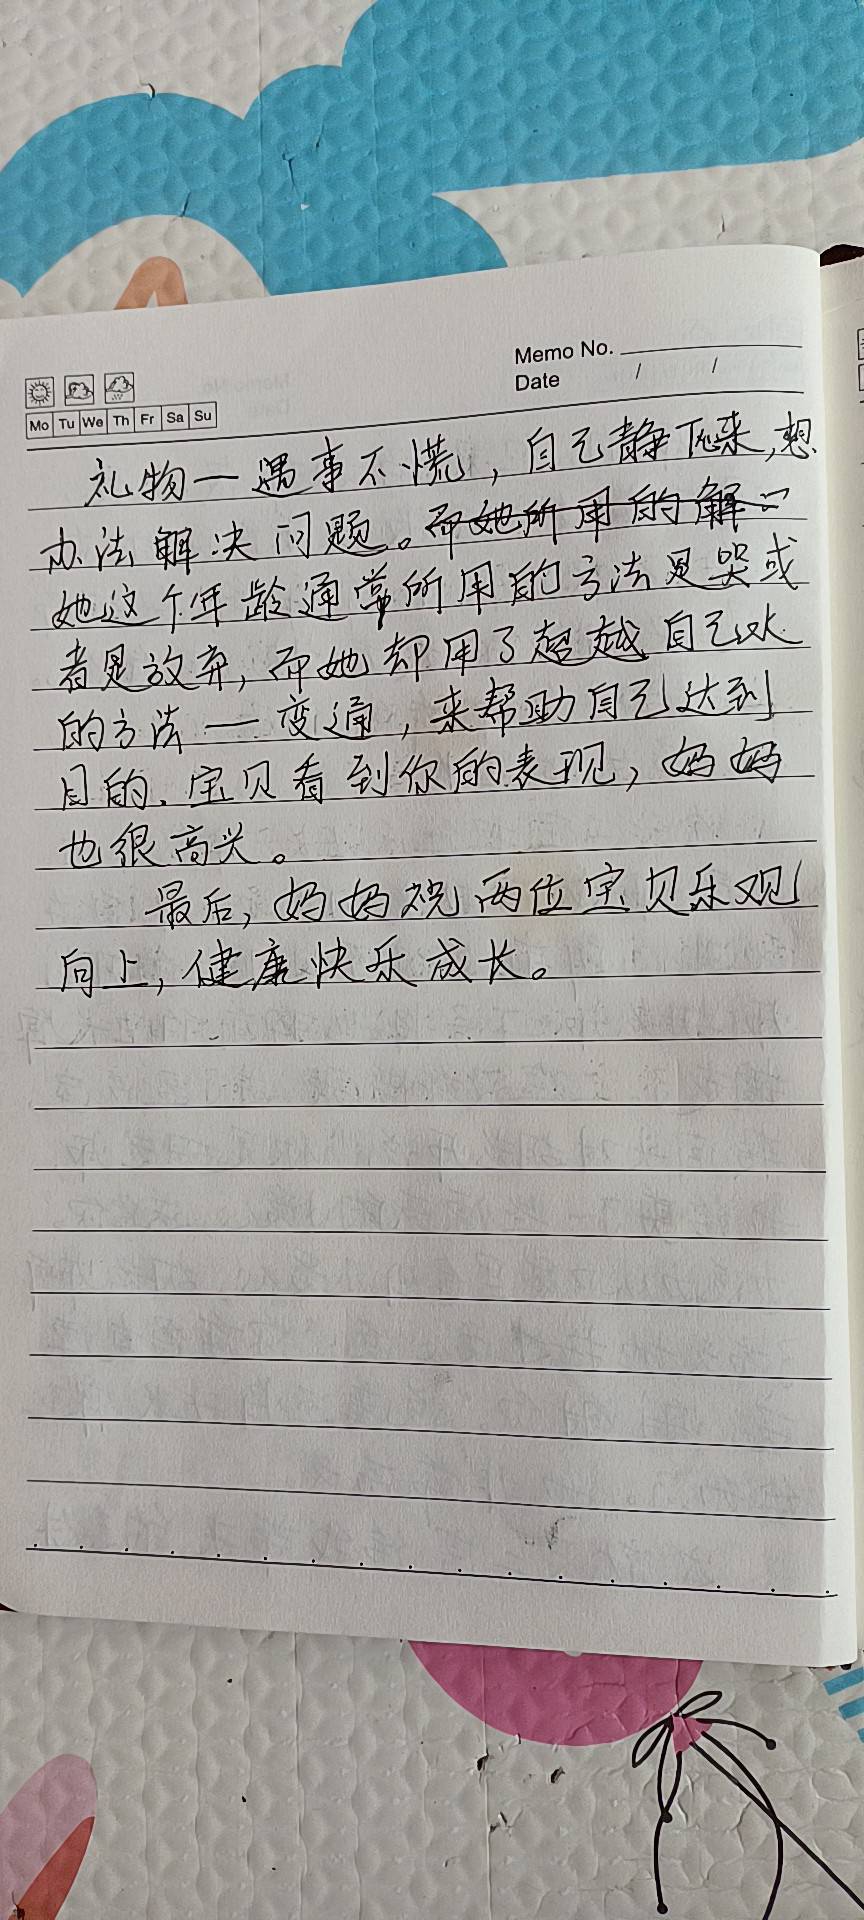 Memo No.
Date / /
Mo Tu We Th Fr Sa Su
礼物一遇事不慌，自己静下来，想
办法解决问题。而她所用的解
她这个年龄通常所用的方法是哭或
者是放弃，而她却用了超越自己以
的方法一变通，来帮助自己达到
目的。宝贝看到你的表现，妈妈
也很高兴。
最后，妈妈祝两位宝贝乐观
向上，健康快乐成长。